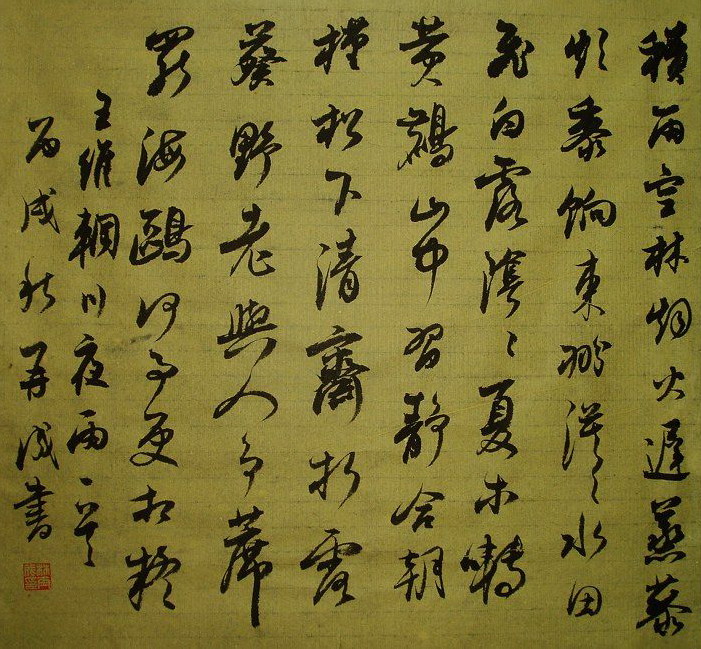 積雨空林烟火遲蒸藜
炊黍餉東漠〻水田
飛白露陰〻夏木囀
黄山中習靜合朝
槿松下清齋折露
葵野老與人爭席
罷海鷗何事更相疑
王維輞川夜雨
丙戌秋再成書